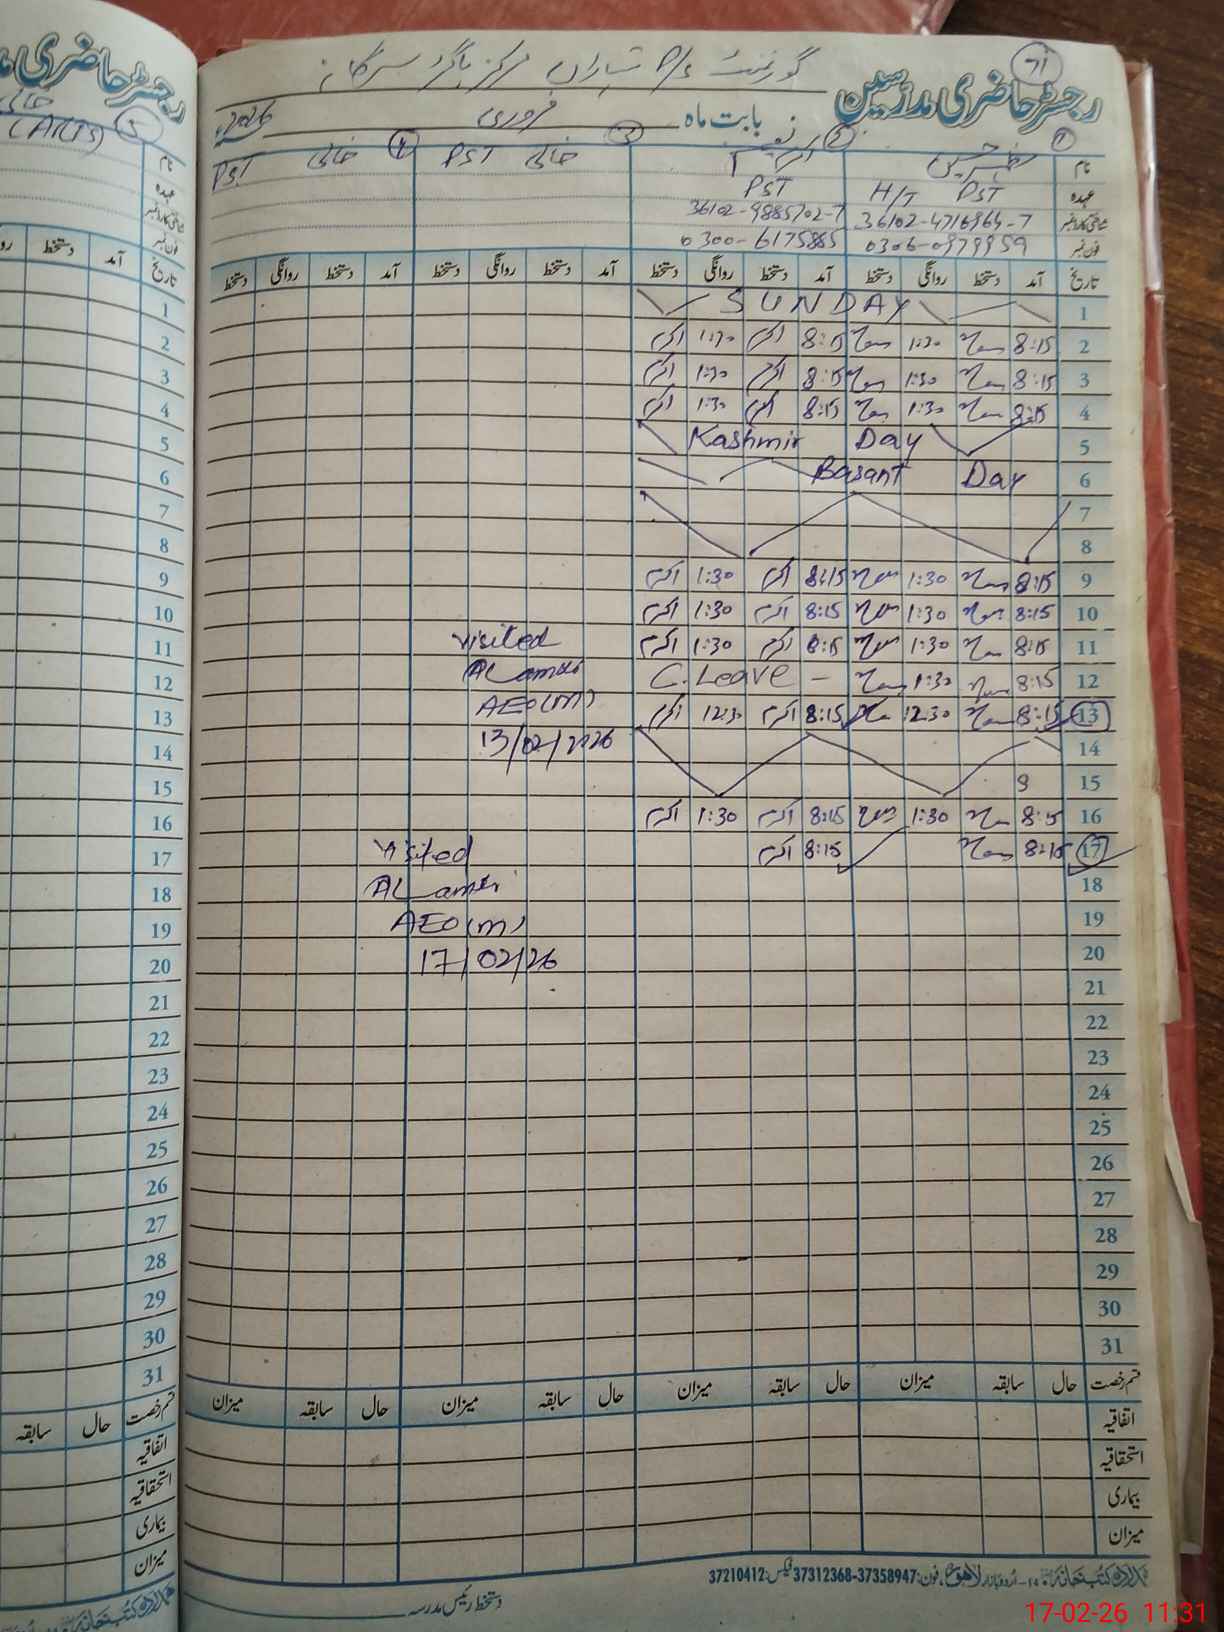 رجسٹر حاضری مدرسین
گورنمنٹ P/S
بابت ماہ فروری 2026ء
نام
عہدہ PST H/T PST PST خالی PST خالی
شناختی کارڈ نمبر 36102-4716964-7 36102-9885702-7
فون نمبر 0306-0979959 0300-6175865
تاریخ آمد دستخط روانگی دستخط آمد دستخط روانگی دستخط آمد دستخط روانگی دستخط آمد دستخط روانگی دستخط
1 SUNDAY
2 8:15 1:30 8:15 اکرم 1:30 اکرم
3 8:15 1:30 8:15 اکرم 1:30 اکرم
4 8:15 1:30 8:15 اکرم 1:30 اکرم
5 Kashmir Day
6 Basant Day
7
8
9 8:15 1:30 8:15 اکرم 1:30 اکرم
10 8:15 1:30 8:15 اکرم 1:30 اکرم
11 8:15 1:30 8:15 اکرم 1:30 اکرم
12 8:15 1:30 C.Leave -
13 8:15 12:30 8:15 اکرم 12:30 اکرم
visited
AEO(M)
13/02/2026
14
15 9
16 8:15 1:30 8:15 اکرم 1:30 اکرم
17 8:15 8:15 اکرم
visited
AEO(M)
17/02/26
18
19
20
21
22
23
24
25
26
27
28
29
30
31
قسم رخصت حال سابقہ میزان حال سابقہ میزان حال سابقہ میزان حال سابقہ میزان
اتفاقیہ
استحقاقیہ
بیماری
میزان
اردو بازار لاہور، فون: 37358947-37312368 فیکس: 37210412
دستخط رئیس مدرسہ
رجسٹر حاضری
خالی
(ARTS) 5
نام
عہدہ
شناختی کارڈ نمبر
فون نمبر
تاریخ آمد دستخط
1
2
3
4
5
6
7
8
9
10
11
12
13
14
15
16
17
18
19
20
21
22
23
24
25
26
27
28
29
30
31
قسم رخصت حال سابقہ
اتفاقیہ
استحقاقیہ
بیماری
میزان
17-02-26 11:31